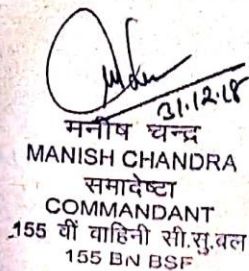 31.12.18
मनीष चन्द्र
MANISH CHANDRA
समादेष्टा
COMMANDANT
155 वीं वाहिनी सी.सु.वल
155 BN BSF